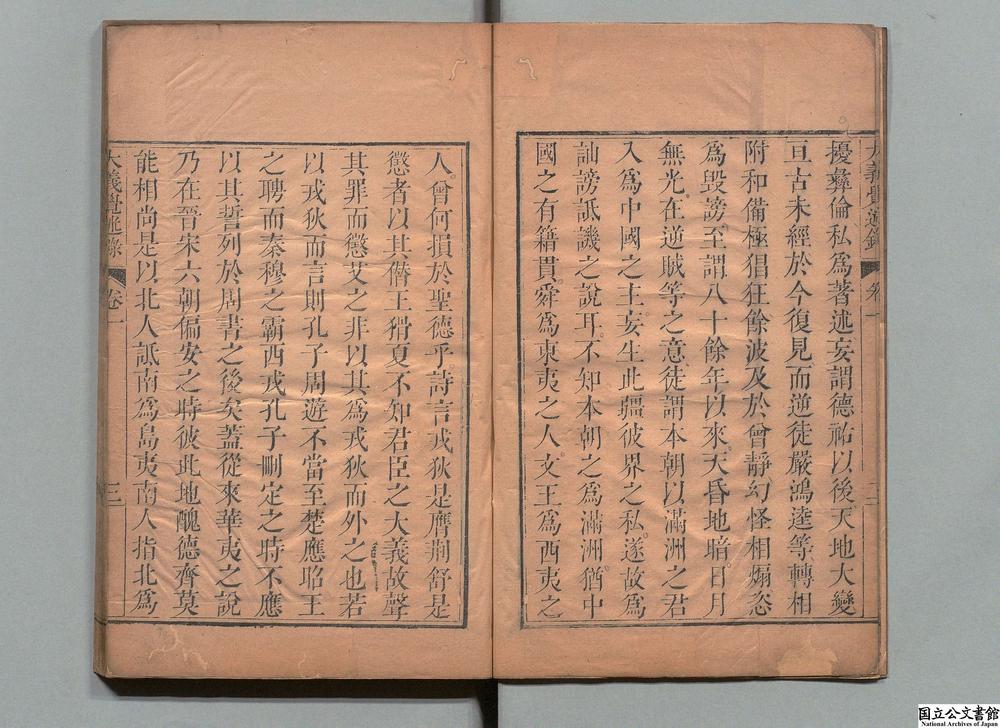 大義覺迷錄 卷一 二
擾彝倫私爲著述妄謂德祐以後天地大變
亘古未經於今復見而逆徒嚴鴻逵等轉相
附和備極猖狂餘波及於曾靜幻怪相煽恣
爲毀謗至謂八十餘年以來天昏地暗日月
無光在逆賊等之意徒謂本朝以滿洲之君
入爲中國之主妄生此疆彼界之私遂故爲
訕謗詆譏之說耳不知本朝之爲滿洲猶中
國之有籍貫舜爲東夷之人文王爲西夷之
人曾何損於聖德乎詩言戎狄是膺荆舒是
懲者以其僭王猾夏不知君臣之大義故聲
其罪而懲艾之非以其爲戎狄而外之也若
以戎狄而言則孔子周遊不當至楚應昭王
之聘而秦穆之霸西戎孔子刪定之時不應
以其誓列於周書之後矣蓋從來華夷之說
乃在晉宋六朝偏安之時彼此地醜德齊莫
能相尚是以北人詆南爲島夷南人指北爲
大義覺迷錄 卷一 三
国立公文書館
National Archives of Japan